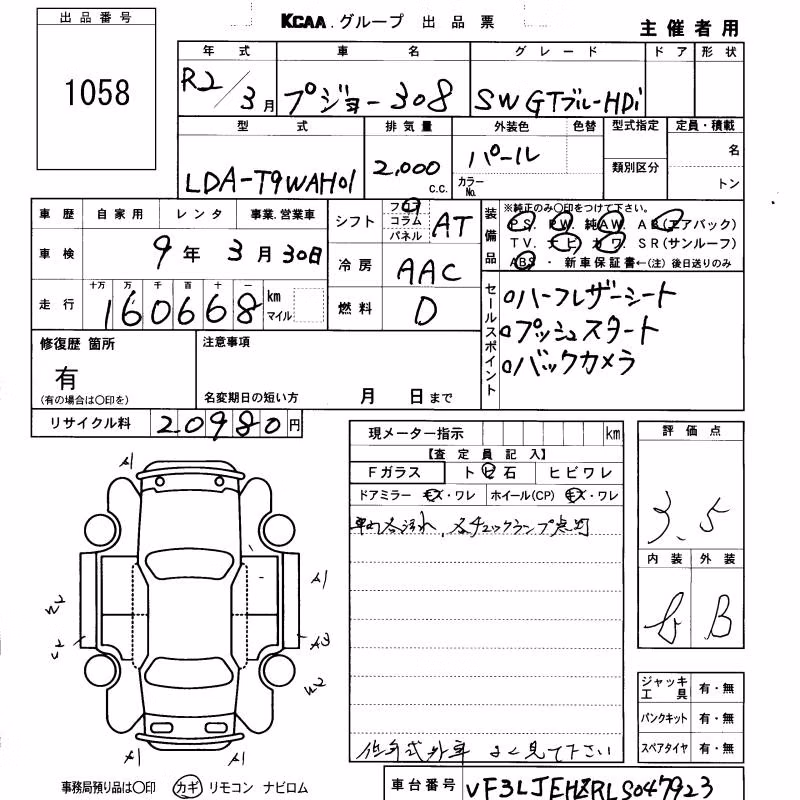 出品番号
1058
KCAA.グループ 出品票
主催者用
年式 車名 グレード ドア 形状
R2/3月 プジョー308 SW GTブルーHDi
型式 排気量 外装色 色替 型式指定 定員・積載
LDA-T9WAH01 2,000 C.C. パール カラーNo. 類別区分 名
トン
車歴 自家用 レンタ 事業.営業車
車検 9年3月30日
走行 十万 万 千 百 十 一
160668 km マイル
シフト フロア コラム パネル AT
冷房 AAC
燃料 D
装備品 ※純正のみ〇印をつけて下さい。
PS. PW. 純AW. AB(エアバック)
TV. ナビ カワ. SR(サンルーフ)
ABS・新車保証書←(注)後日送りのみ
セールスポイント
ハーフレザーシート
プッシュスタート
バックカメラ
修復歴 箇所
有
(有の場合は〇印を)
注意事項
名変期日の短い方 月 日まで
リサイクル料 20980円
現メーター指示 km
【査定員記入】
Fガラス トビ石 ヒビワレ
ドアミラー キズ・ワレ ホイール(CP) キズ・ワレ
チェックランプ点灯
低年式外車 よく見て下さい
評価点
3.5
内装 外装
B
ジャッキ工具 有・無
パンクキット 有・無
スペアタイヤ 有・無
A1
A1
W2
A3
W2
A1
A1
事務局預り品は〇印 カギ リモコン ナビロム
車台番号 VF3LJEHZRLS047923